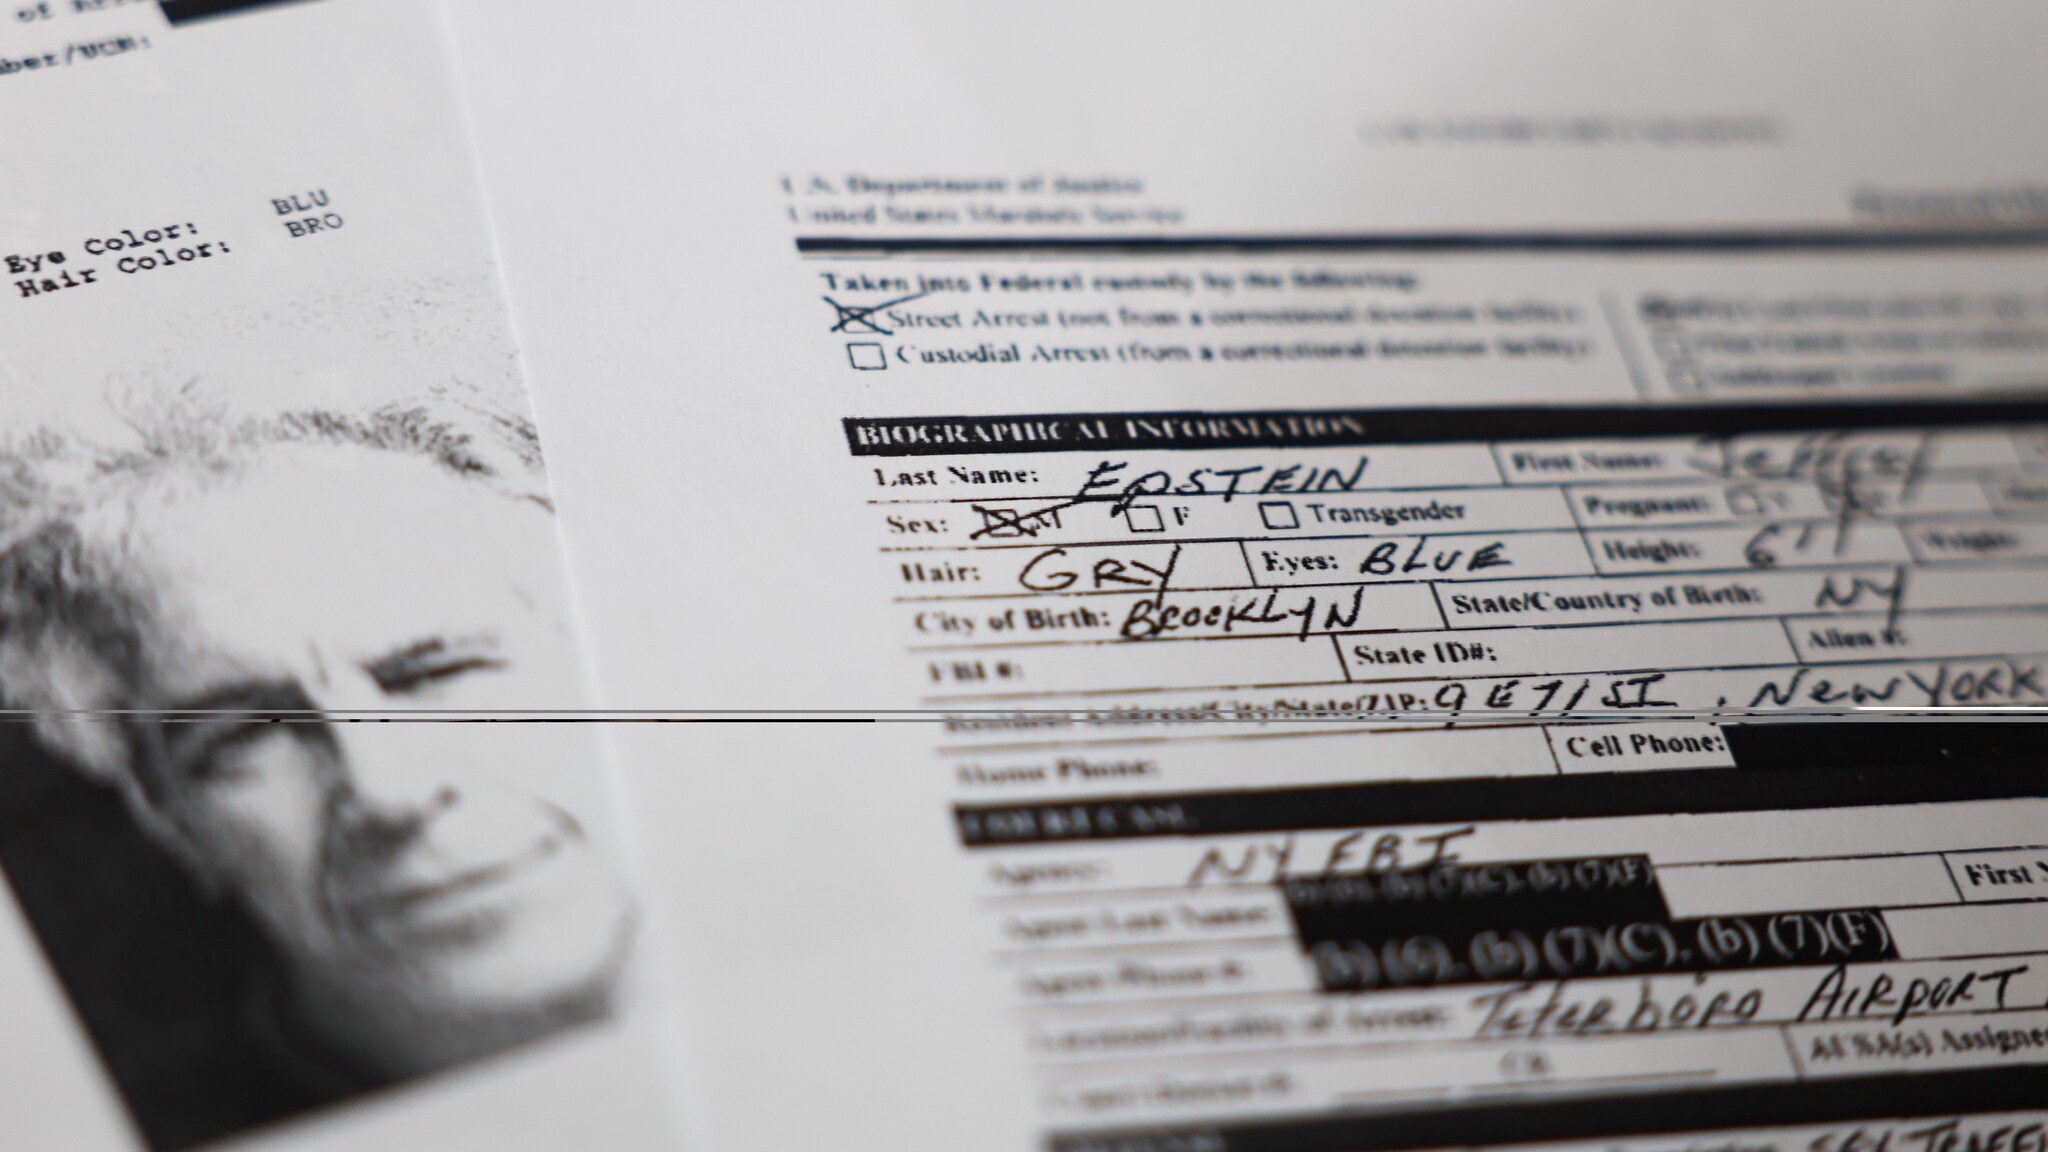 of Arr
ber/UCN:
Eye Color: BLU
Hair Color: BRO
U.S. Department of Justice
United States Marshals Service
Taken into Federal custody by the following:
Street Arrest (not from a correctional detention facility)
Custodial Arrest (from a correctional detention facility)
BIOGRAPHICAL INFORMATION
Last Name: EPSTEIN First Name: Jeffrey
Sex: M F Transgender Pregnant:
Hair: GRY Eyes: BLUE Height: 6'1" Weight:
City of Birth: BROOKLYN State/Country of Birth: NY
FBI #: State ID#: Alien #:
Resident Address/City/State/ZIP: 9 E 71 ST, New YORK
Home Phone: Cell Phone:
COURT CASE
Agency: NY FBI
Agent Last Name: (b) (6), (b) (7)(C), (b) (7)(F) First
Agent Phone #: (b) (6), (b) (7)(C), (b) (7)(F)
of Arrest: Teterboro AIRPORT
CR AUSA(s) Assigned
SEX TRAFFI